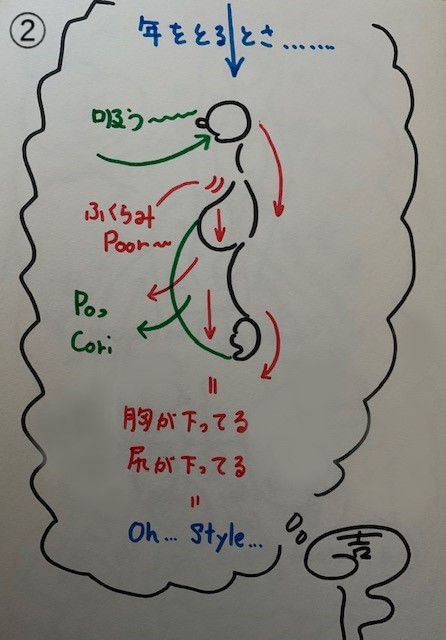 ②
年をとるとさ.......
ふくらみ
Poor〜
Poっ
Cori
=
胸が下ってる
尻が下ってる
=
Oh... Style...